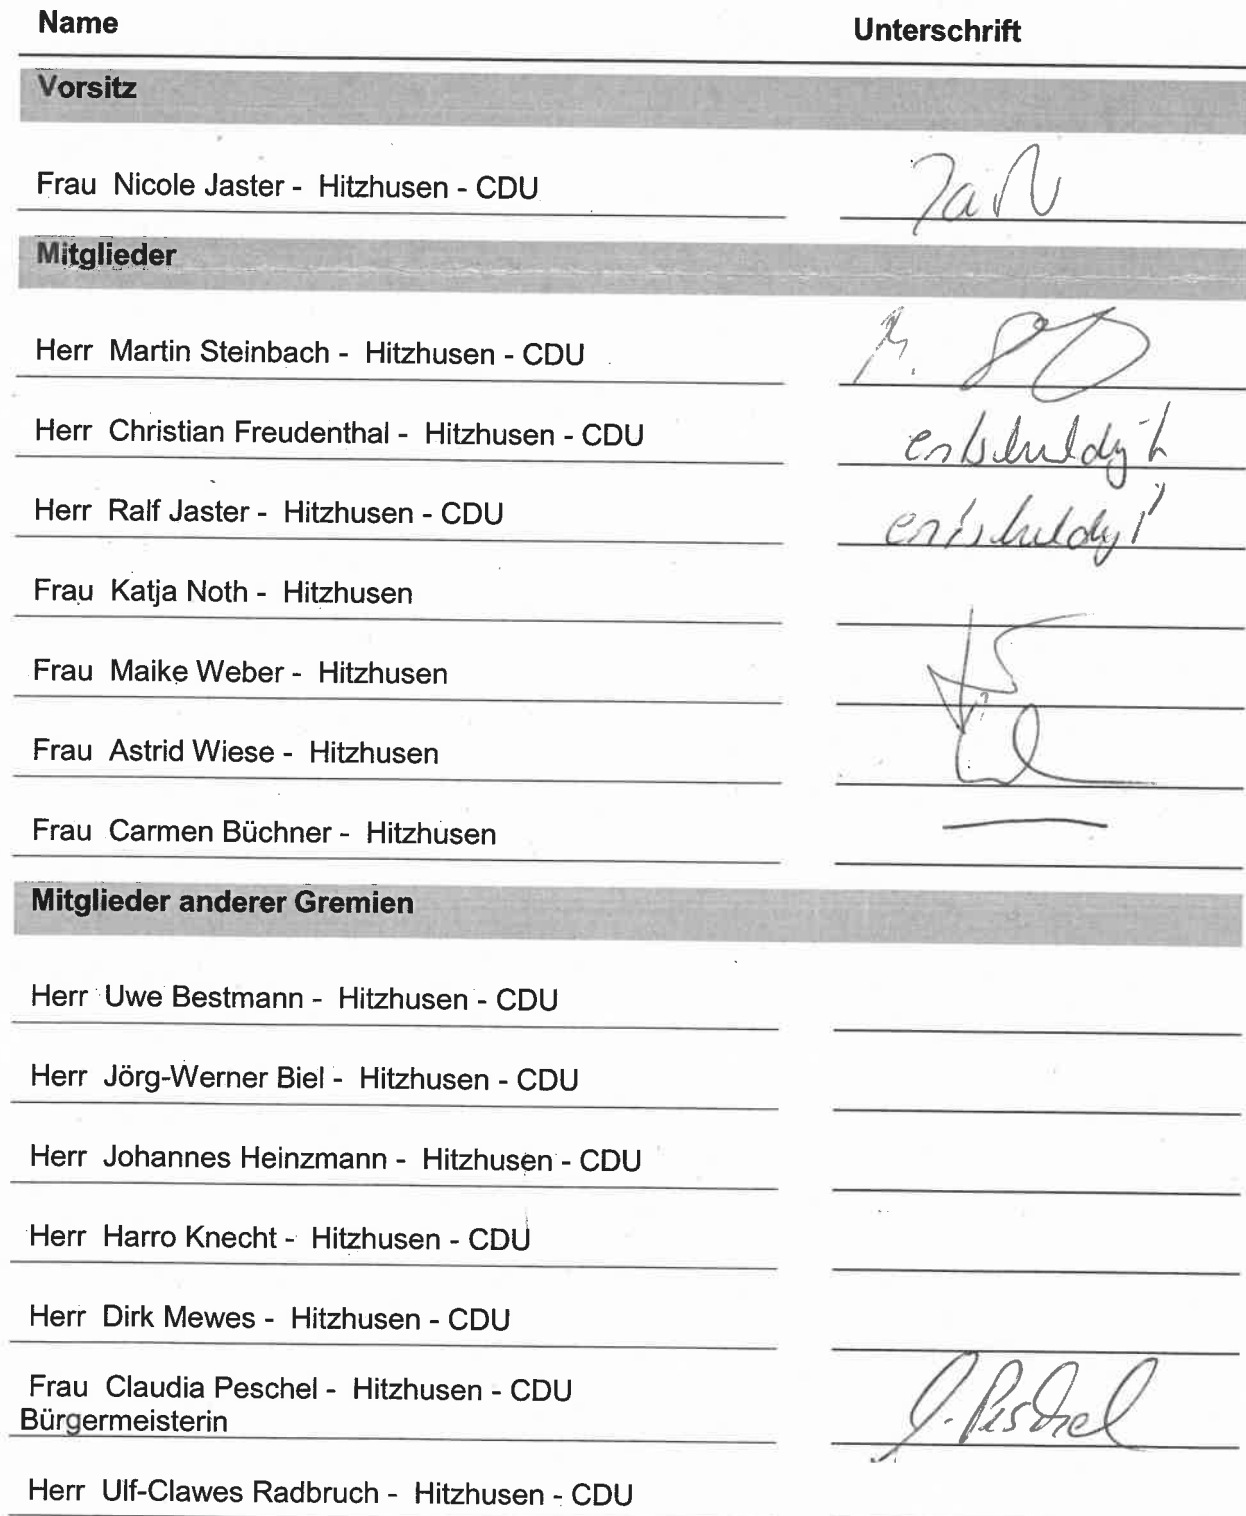 Name Unterschrift
Vorsitz
Frau Nicole Jaster - Hitzhusen - CDU
Mitglieder
Herr Martin Steinbach - Hitzhusen - CDU
Herr Christian Freudenthal - Hitzhusen - CDU entschuldigt
Herr Ralf Jaster - Hitzhusen - CDU entschuldigt
Frau Katja Noth - Hitzhusen
Frau Maike Weber - Hitzhusen
Frau Astrid Wiese - Hitzhusen
Frau Carmen Büchner - Hitzhusen
Mitglieder anderer Gremien
Herr Uwe Bestmann - Hitzhusen - CDU
Herr Jörg-Werner Biel - Hitzhusen - CDU
Herr Johannes Heinzmann - Hitzhusen - CDU
Herr Harro Knecht - Hitzhusen - CDU
Herr Dirk Mewes - Hitzhusen - CDU
Frau Claudia Peschel - Hitzhusen - CDU
Bürgermeisterin Peschel
Herr Ulf-Clawes Radbruch - Hitzhusen - CDU